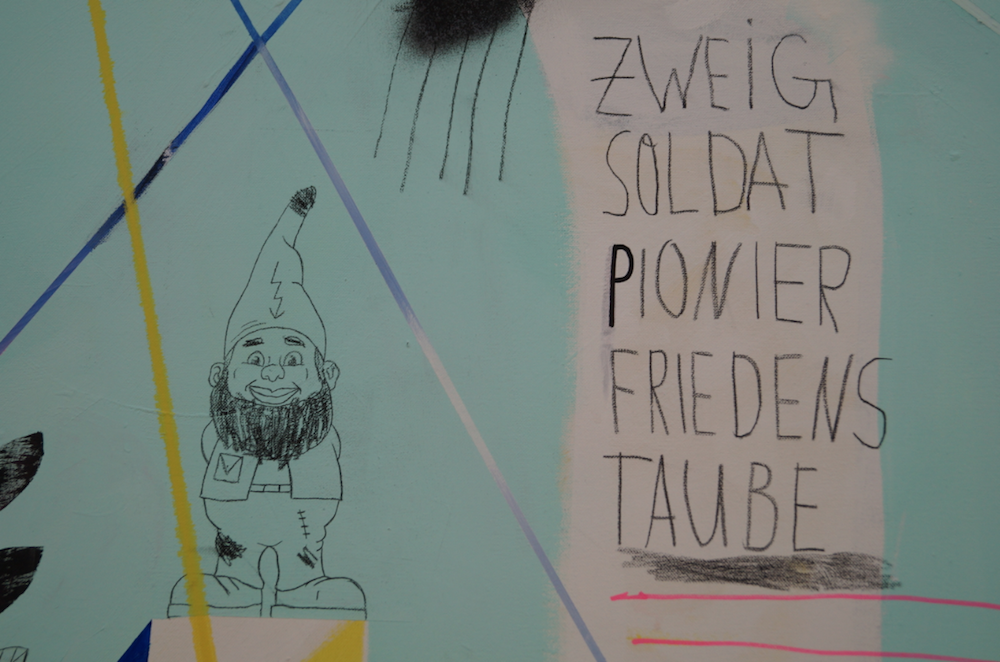 ZWEiG
SOLDAT
PIONIER
FRIEDENS
TAUBE